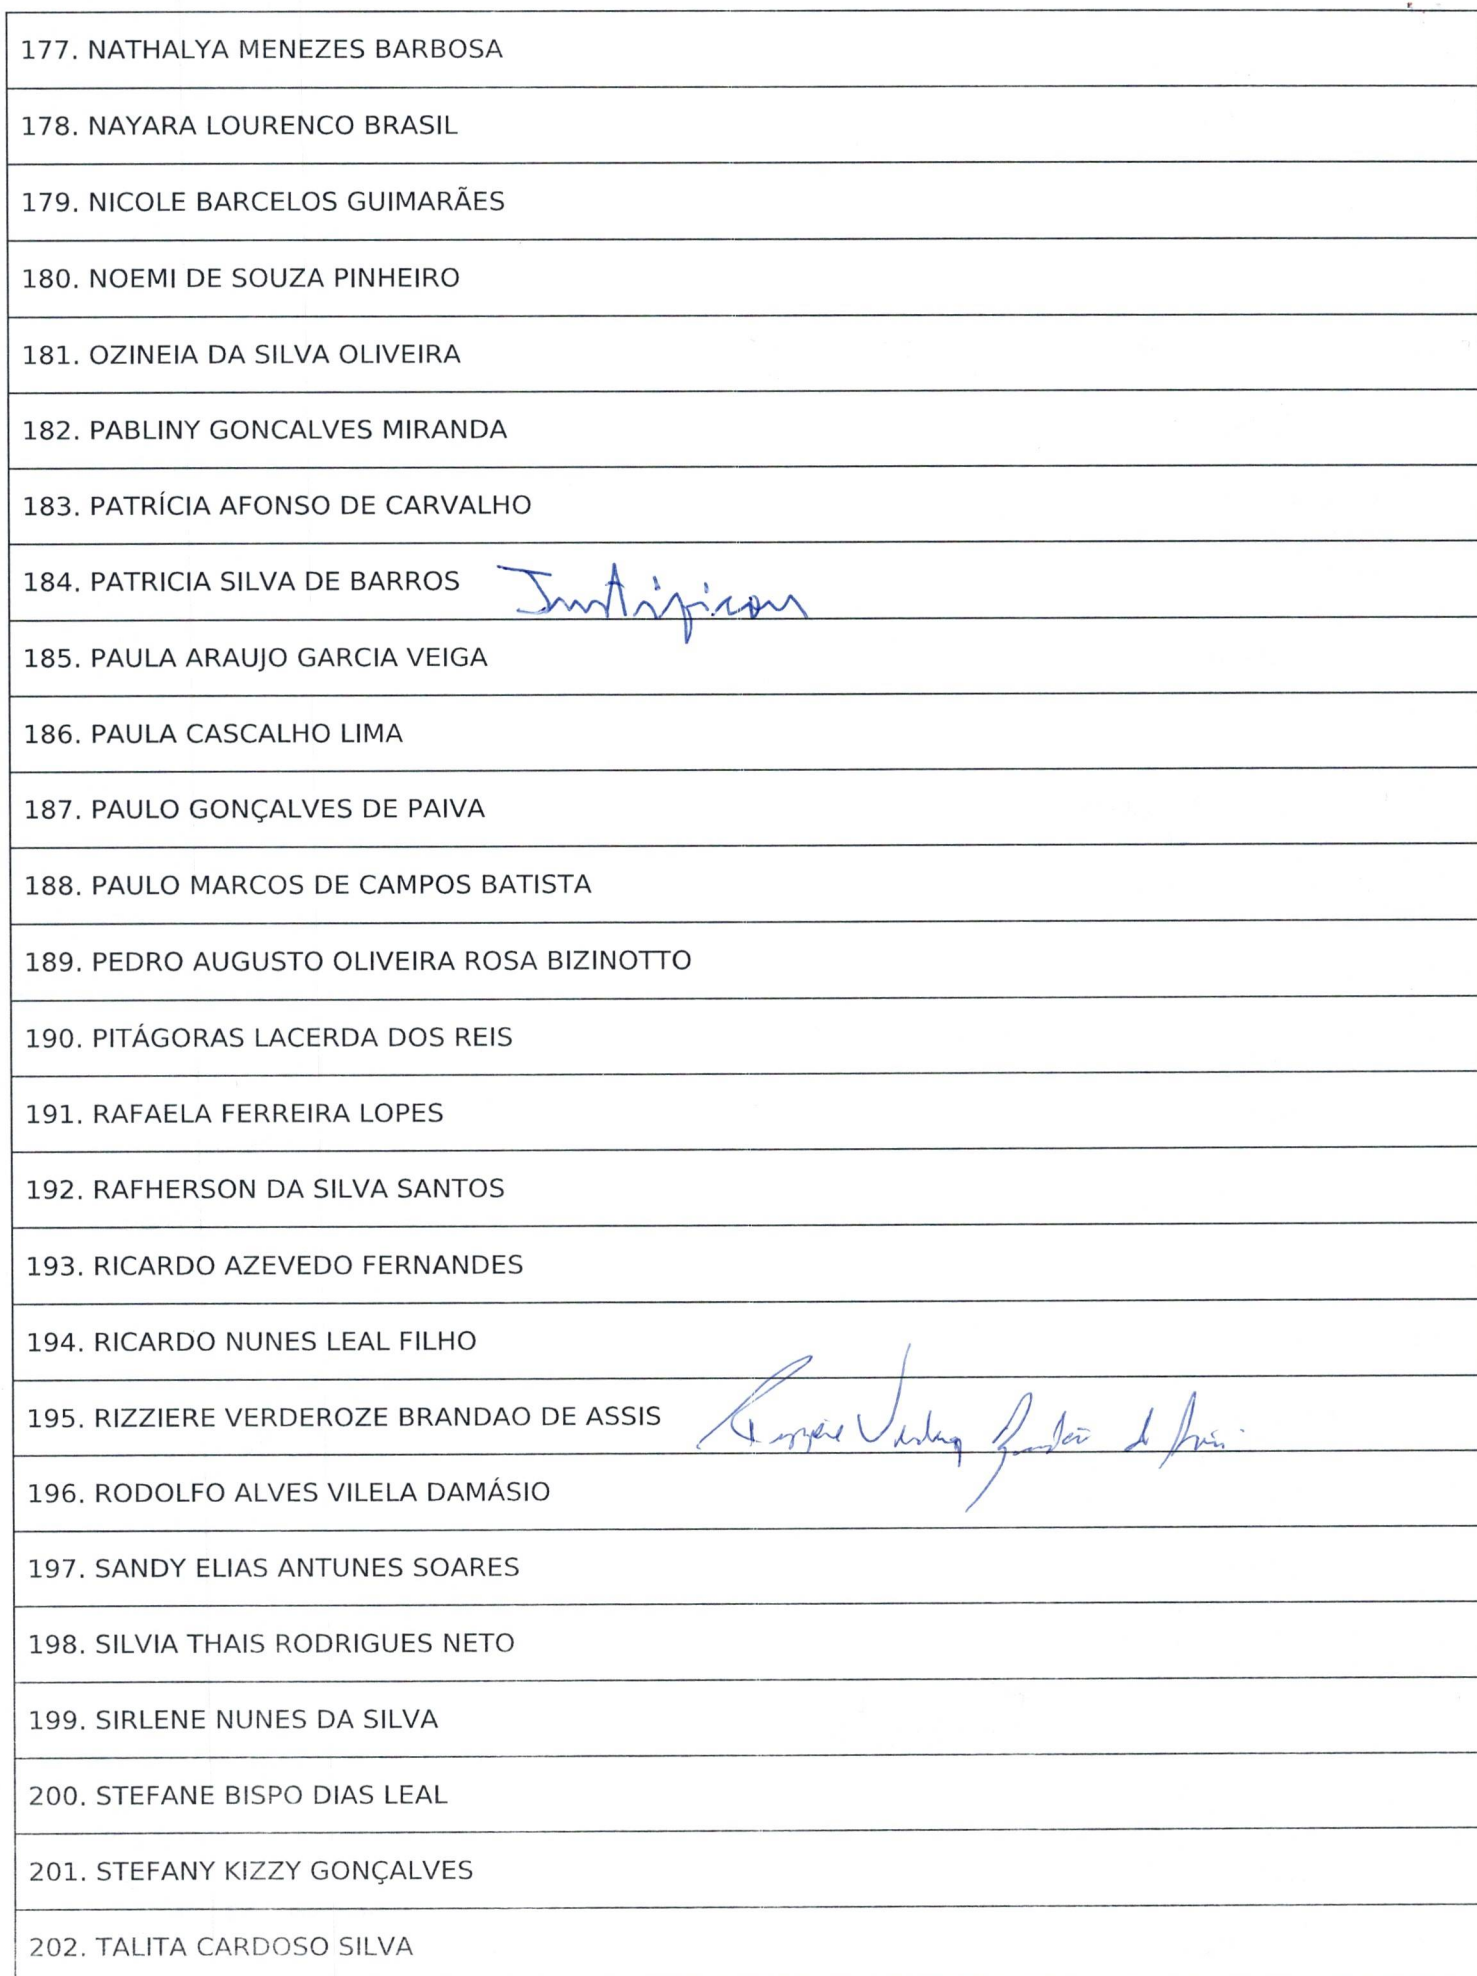 177. NATHALYA MENEZES BARBOSA
178. NAYARA LOURENCO BRASIL
179. NICOLE BARCELOS GUIMARÃES
180. NOEMI DE SOUZA PINHEIRO
181. OZINEIA DA SILVA OLIVEIRA
182. PABLINY GONCALVES MIRANDA
183. PATRÍCIA AFONSO DE CARVALHO
184. PATRICIA SILVA DE BARROS Justificou
185. PAULA ARAUJO GARCIA VEIGA
186. PAULA CASCALHO LIMA
187. PAULO GONÇALVES DE PAIVA
188. PAULO MARCOS DE CAMPOS BATISTA
189. PEDRO AUGUSTO OLIVEIRA ROSA BIZINOTTO
190. PITÁGORAS LACERDA DOS REIS
191. RAFAELA FERREIRA LOPES
192. RAFHERSON DA SILVA SANTOS
193. RICARDO AZEVEDO FERNANDES
194. RICARDO NUNES LEAL FILHO
195. RIZZIERE VERDEROZE BRANDAO DE ASSIS
196. RODOLFO ALVES VILELA DAMÁSIO
197. SANDY ELIAS ANTUNES SOARES
198. SILVIA THAIS RODRIGUES NETO
199. SIRLENE NUNES DA SILVA
200. STEFANE BISPO DIAS LEAL
201. STEFANY KIZZY GONÇALVES
202. TALITA CARDOSO SILVA